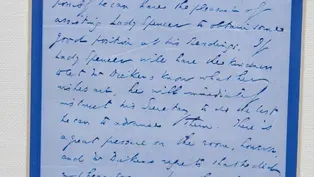 he can have the pleasure of
assisting Lady Spencer to obtain some
good position at his Readings. If
Lady Spencer will have the kindness
to let Mr Dickens know what her
wishes are, he will immediately
instruct his Secretary to do the best
he can to advance them. There is
a great pressure on the room, however,
and Mr Dickens